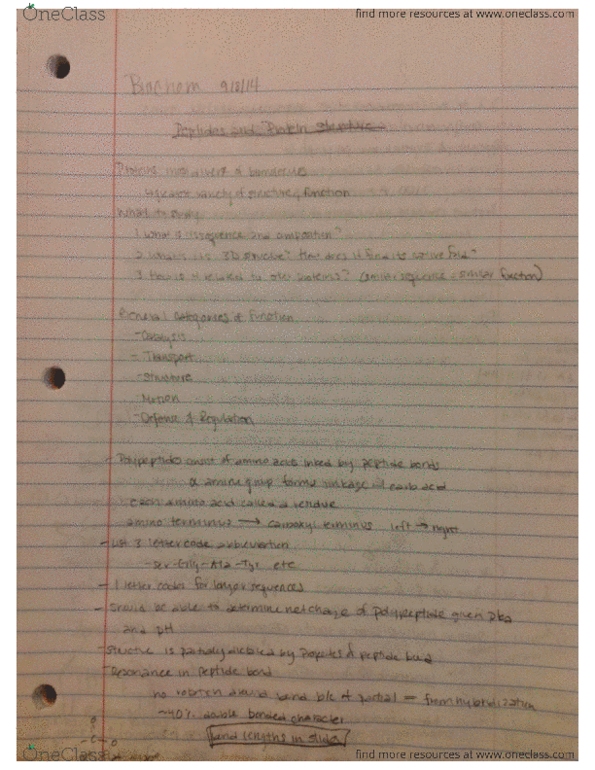 OneClass
find more resources at www.oneclass.com
Biochem 9/2/14
Peptides and Protein Structure
Proteins most diverse of
variety of structure, function
What to study
1 What is sequence and composition?
2 What is its 3D structure? How does it find its native fold?
3 How is it related to other proteins? (similar sequence = similar function)
General Categories of Function
-Catalysis
- Transport
-Structure
Motion
-Defense & Regulation
- Polypeptides consist of amino acids linked by peptide bonds
α amine group forms linkage w/ carb acid
each amino acid called a residue
amino terminus → carboxyl terminus left → right
- List 3 letter code abbreviation
-Ser-Gly-Ala-Tyr etc
- 1 letter codes for longer sequences
- Should be able to determine net charge of polypeptide given pka
and pH
-Structure is partially dictated by properties of peptide bond
-Resonance in peptide bond
no rotation around bond b/c of partial = from hybridization
~40% double bonded character
bond lengths in slides
OneClass
find more resources at www.oneclass.com